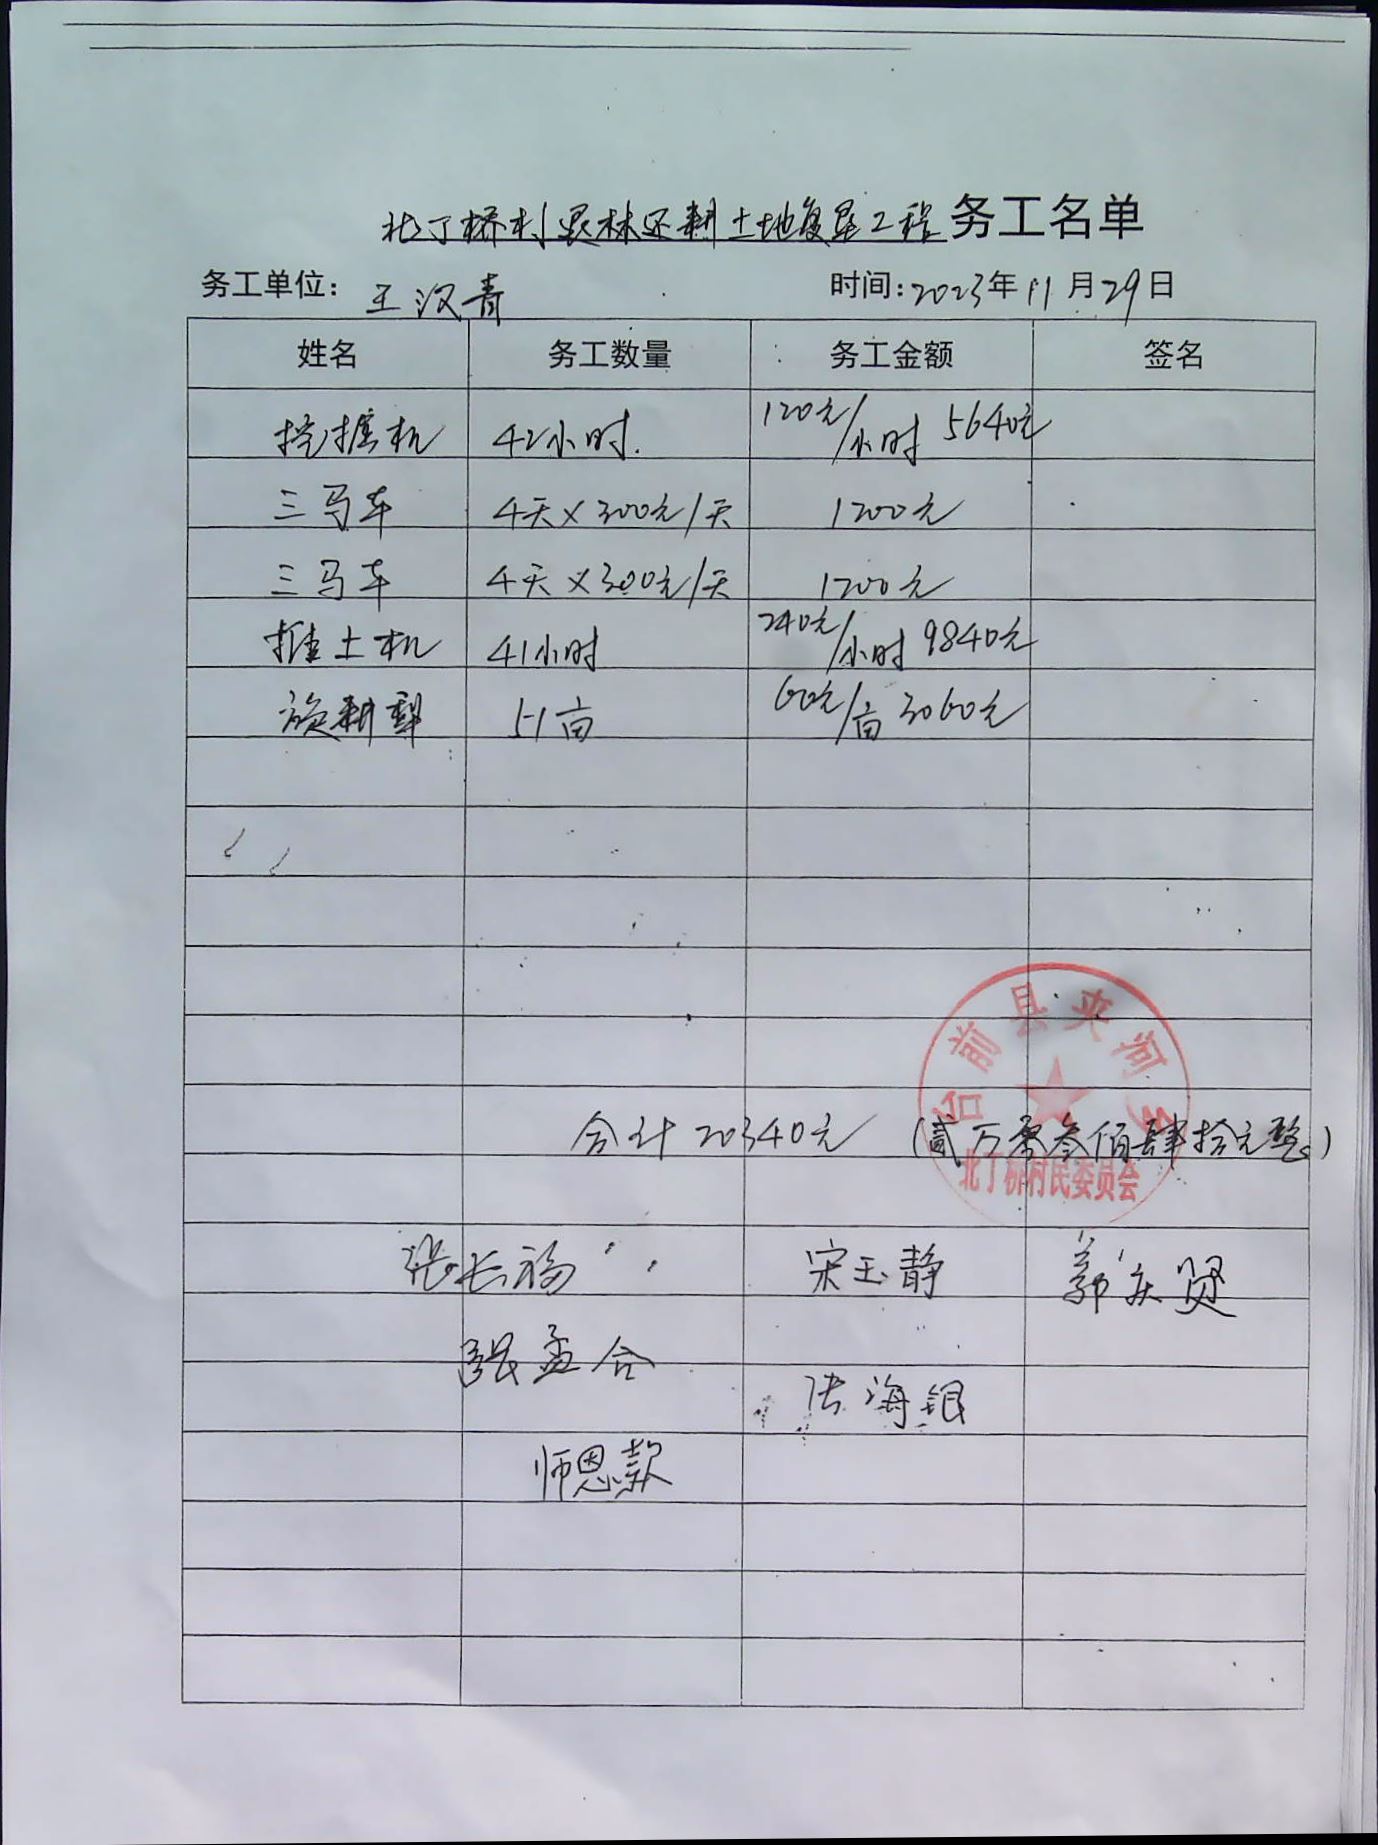 北丁桥村退林还耕土地复垦工程务工名单
务工单位: 王汉青 时间:2023年11月29日
姓名 务工数量 务工金额 签名
挖掘机 42小时. 120元/小时 5640元
三马车 4天×300元/天 1200元
三马车 4天×300元/天 1200元
推土机 41小时 240元/小时 9840元
旋耕犁 51亩 60元/亩 3060元
台前县夹河乡
合计20340元 (贰万零叁佰肆拾元整)
北丁桥村民委员会
张长福 宋玉静 郭庆贤
张孟合
张海银
师恩款